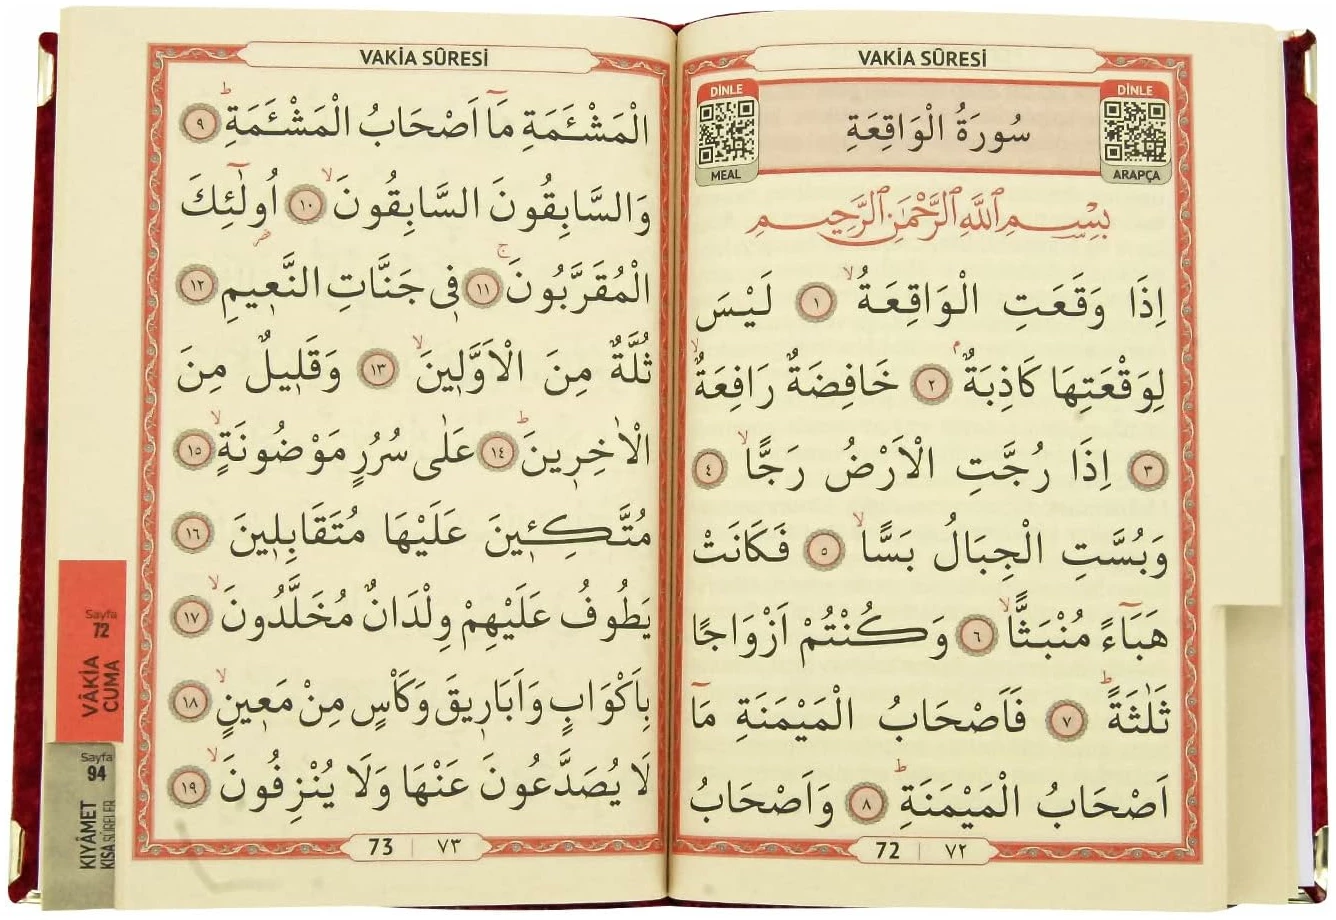 VAKİA SÛRESİ
DİNLE
MEAL
سُورَةُ الْوَاقِعَةِ
DİNLE
ARAPÇA
بِسْمِ اللّٰهِ الرَّحْمٰنِ الرَّحِيمِ
اِذَا وَقَعَتِ الْوَاقِعَةُۙ ﴿١﴾ لَيْسَ
لِوَقْعَتِهَا كَاذِبَةٌۢ ﴿٢﴾ خَافِضَةٌ رَافِعَةٌۙ
﴿٣﴾ اِذَا رُجَّتِ الْاَرْضُ رَجًّاۙ ﴿٤﴾
وَبُسَّتِ الْجِبَالُ بَسًّاۙ ﴿٥﴾ فَكَانَتْ
هَبَٓاءً مُنْبَثًّاۙ ﴿٦﴾ وَكُنْتُمْ اَزْوَاجًا
ثَلٰثَةًۜ ﴿٧﴾ فَاَصْحَابُ الْمَيْمَنَةِ مَٓا
اَصْحَابُ الْمَيْمَنَةِۜ ﴿٨﴾ وَاَصْحَابُ
72 | ٧٢
VAKİA SÛRESİ
الْمَشْـَٔمَةِ مَٓا اَصْحَابُ الْمَشْـَٔمَةِۜ ﴿٩﴾
وَالسَّابِقُونَ السَّابِقُونَۙ ﴿١٠﴾ اُو۬لٰٓئِكَ
الْمُقَرَّبُونَۚ ﴿١١﴾ فٖى جَنَّاتِ النَّعٖيمِ ﴿١٢﴾
ثُلَّةٌ مِنَ الْاَوَّلٖينَۙ ﴿١٣﴾ وَقَلٖيلٌ مِنَ
الْاٰخِرٖينَۜ ﴿١٤﴾ عَلٰى سُرُرٍ مَوْضُونَةٍۙ ﴿١٥﴾
مُتَّكِـٖٔينَ عَلَيْهَا مُتَقَابِلٖينَ ﴿١٦﴾
يَطُوفُ عَلَيْهِمْ وِلْدَانٌ مُخَلَّدُونَۙ ﴿١٧﴾
بِاَكْوَابٍ وَاَبَارٖيقَ وَكَأْسٍ مِنْ مَعٖينٍۙ ﴿١٨﴾
لَا يُصَدَّعُونَ عَنْهَا وَلَا يُنْزِفُونَۙ ﴿١٩﴾
73 | ٧٣
Sayfa
72
VÂKİA
CUMA
Sayfa
94
KIYÂMET
KISA SÛRELER